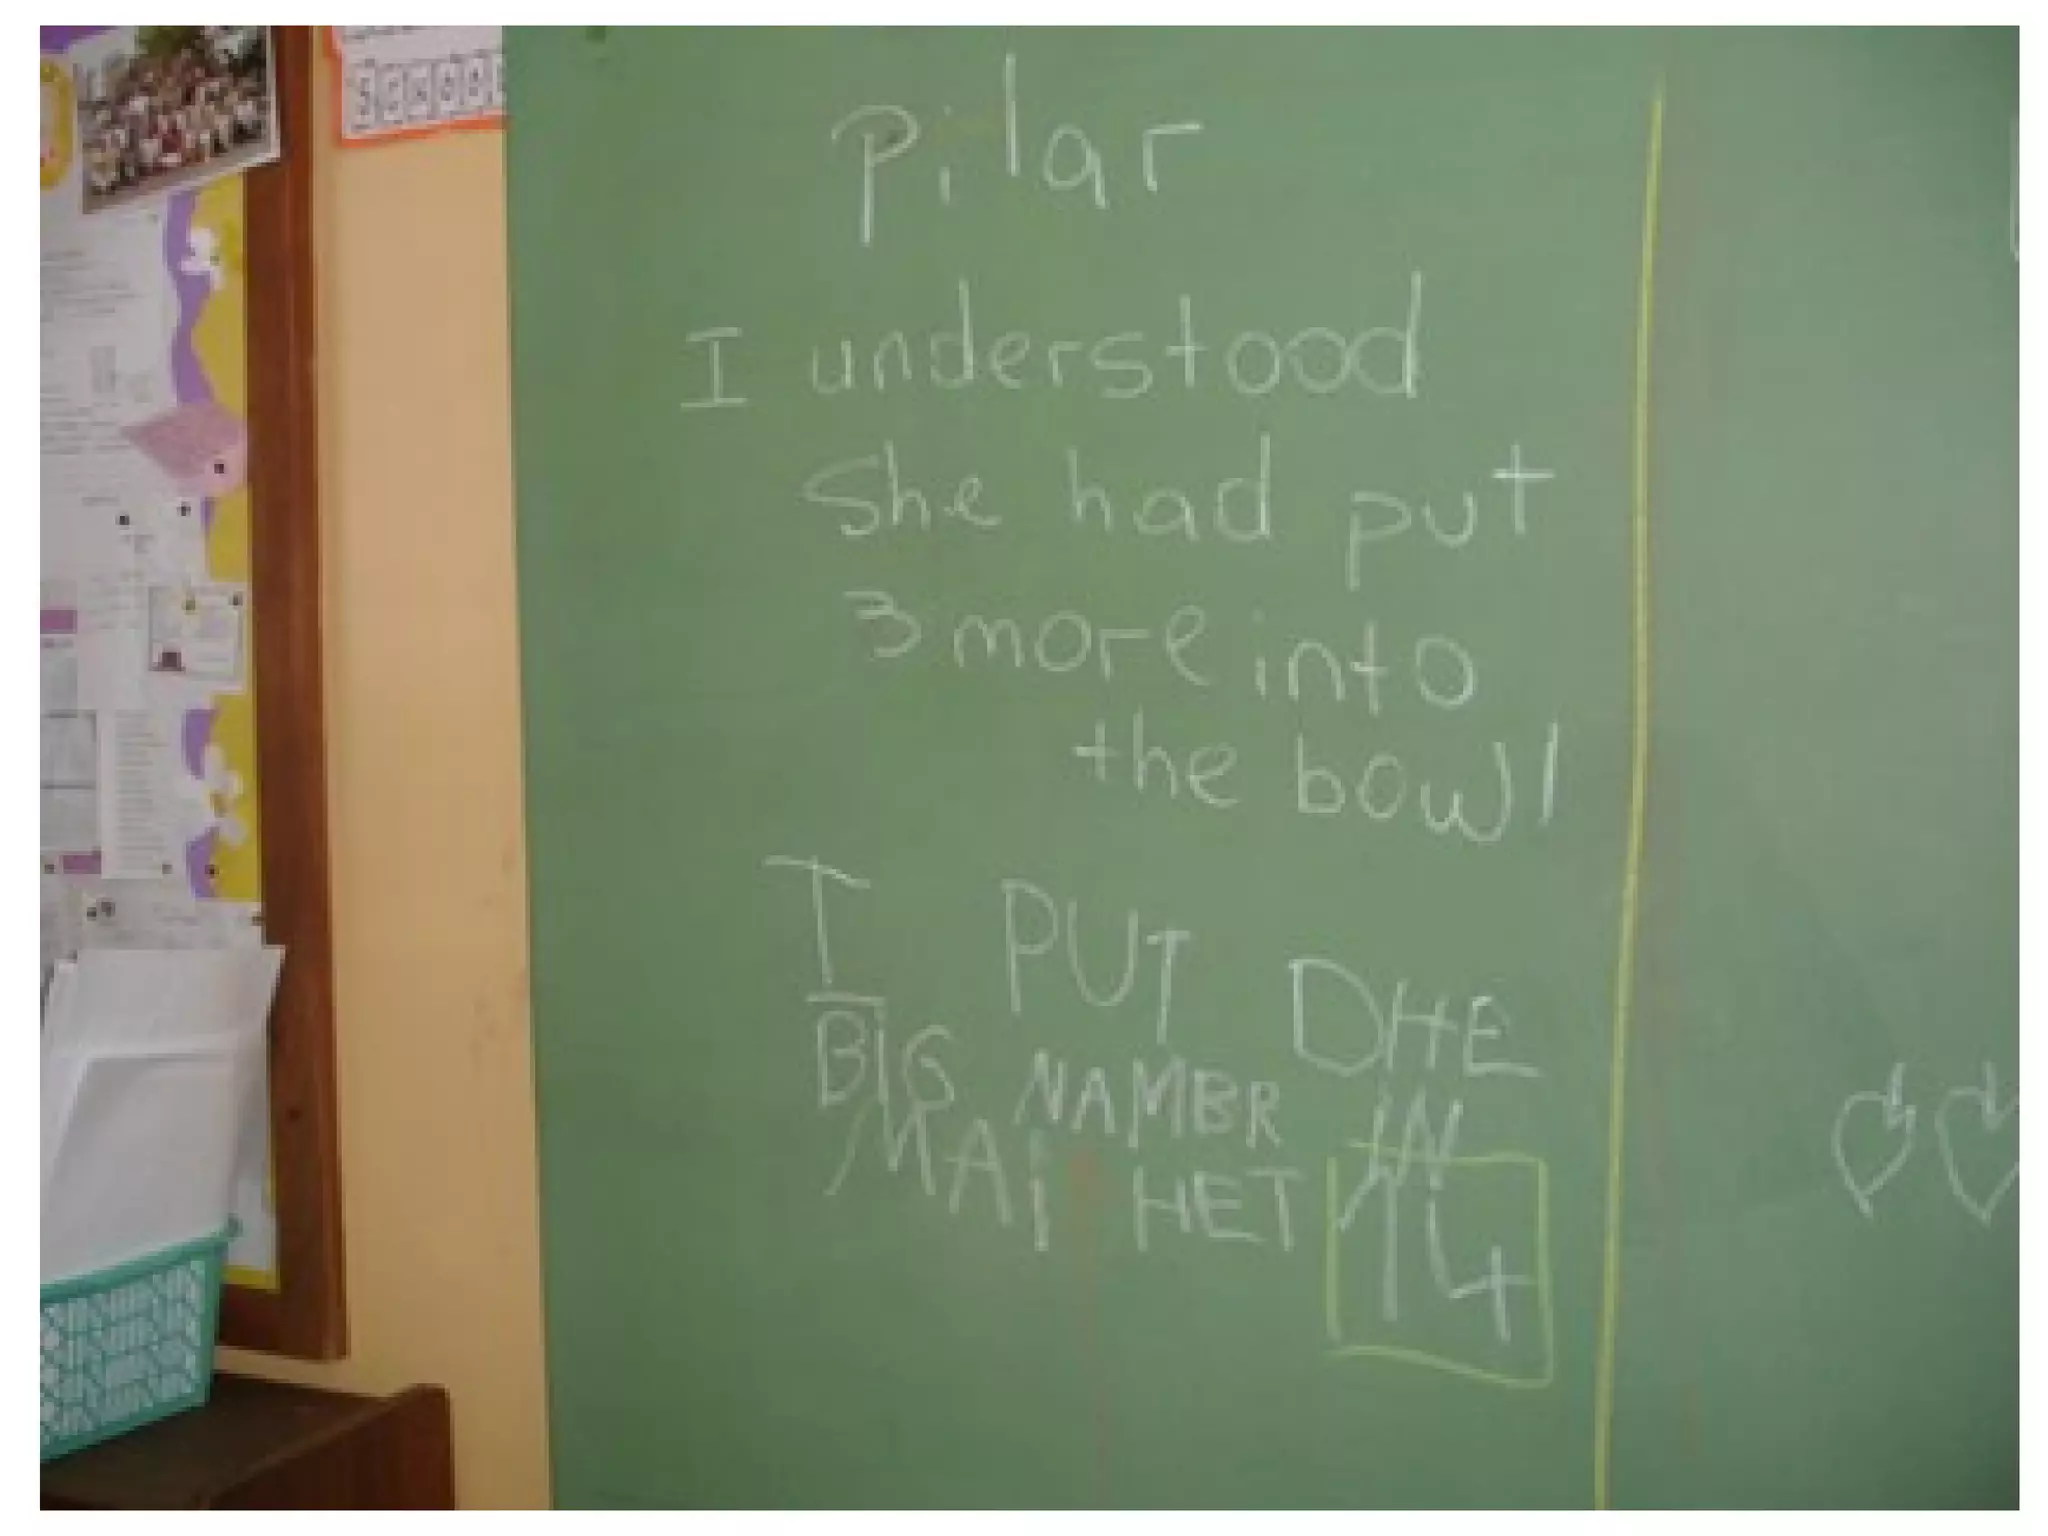 SCHOO
Pilar
I understood
She had put
3 more into
the bowl
I PUT DHE
BIG NAMBR IN
MAI HET 14